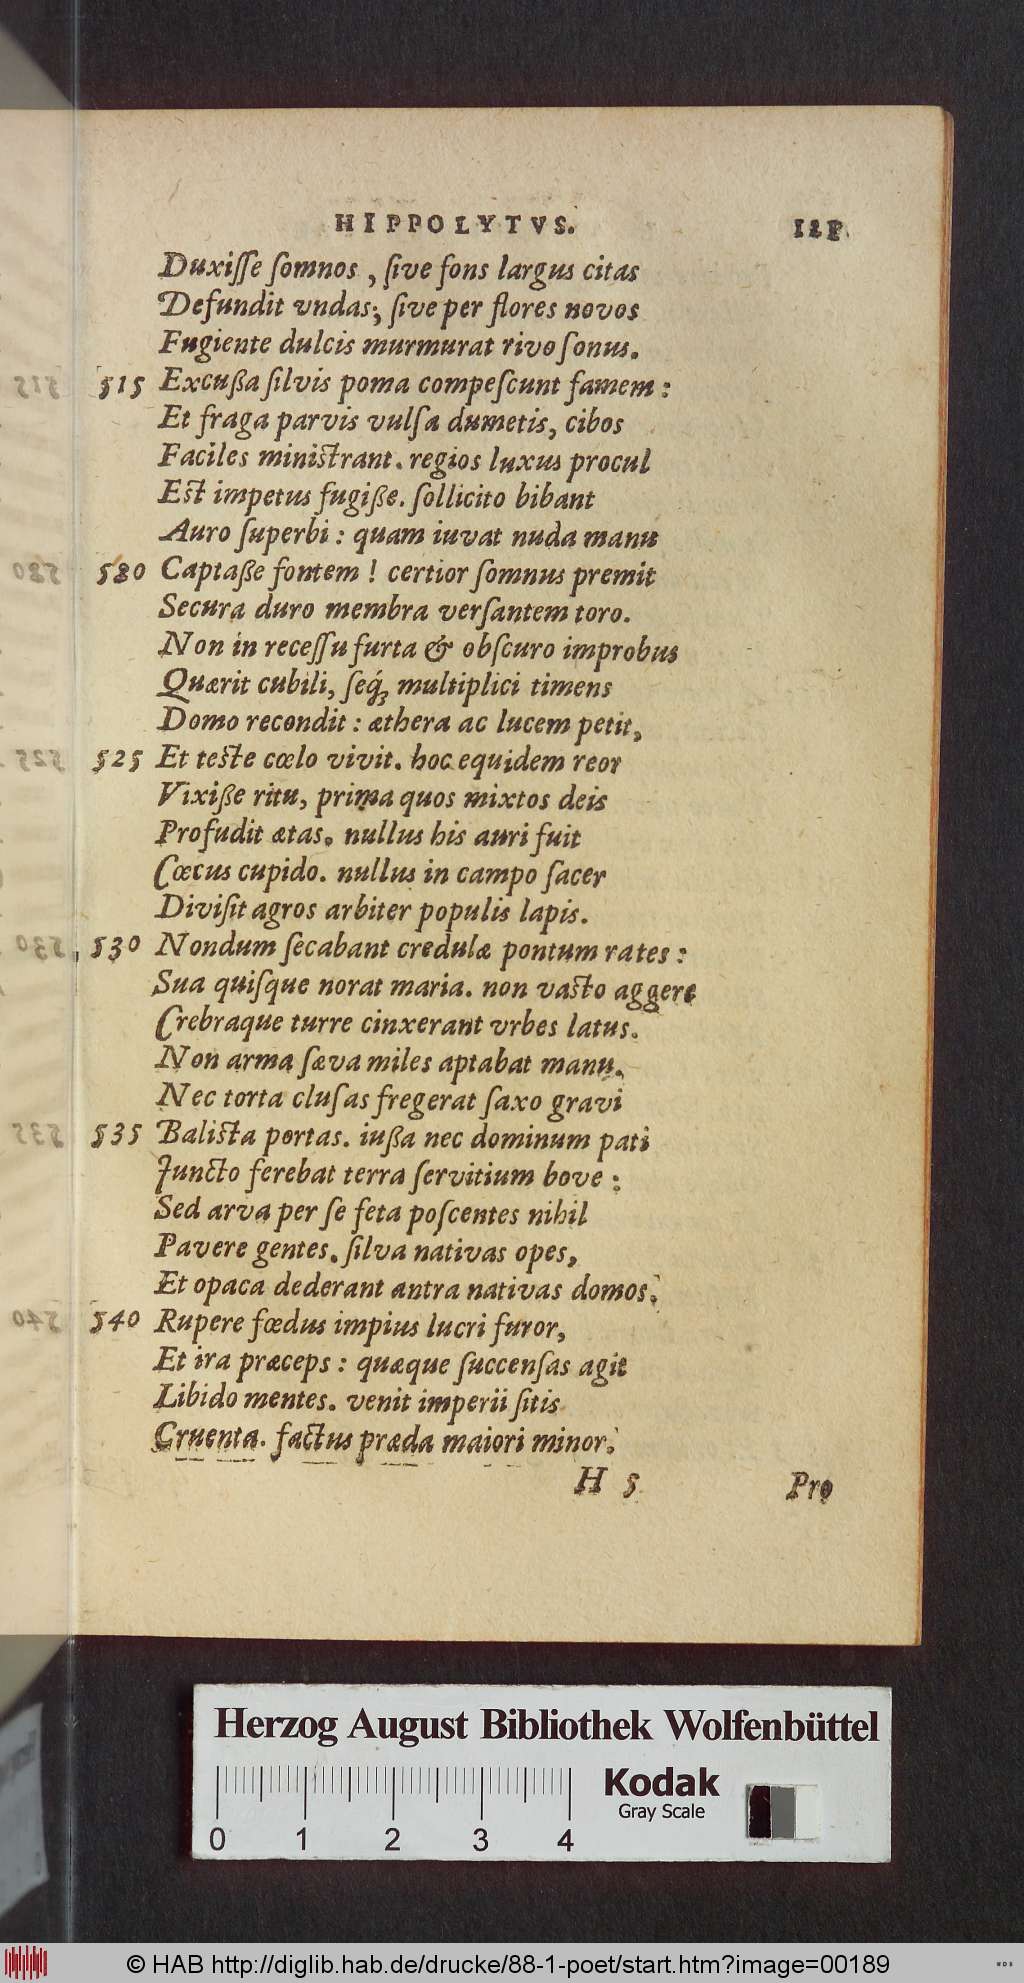 HIPPOLYTVS. 121
Duxiſſe ſomnos , ſive fons largus citas
Defundit vndas; ſive per flores novos
Fugiente dulcis murmurat rivo ſonus.
515 Excußa ſilvis poma compeſcunt famem :
Et fraga parvis vulſa dumetis, cibos
Faciles miniſtrant. regios luxus procul
Eſt impetus fugiße. ſollicito bibant
Auro ſuperbi : quam iuvat nuda manu
520 Captaße fontem ! certior ſomnus premit
Secura duro membra verſantem toro.
Non in receſſu furta & obſcuro improbus
Quærit cubili, ſeq́; multiplici timens
Domo recondit : æthera ac lucem petit,
525 Et teſte cœlo vivit. hoc equidem reor
Vixiße ritu, prima quos mixtos deis
Profudit ætas. nullus his auri fuit
Cœcus cupido. nullus in campo ſacer
Diviſit agros arbiter populis lapis.
530 Nondum ſecabant credulæ pontum rates :
Sua quiſque norat maria. non vaſto aggere
Crebraque turre cinxerant vrbes latus.
Non arma ſæva miles aptabat manu.
Nec torta cluſas fregerat ſaxo gravi
535 Baliſta portas. iußa nec dominum pati
Juncto ferebat terra ſervitium bove :
Sed arva per ſe feta poſcentes nihil
Pavere gentes. ſilva nativas opes,
Et opaca dederant antra nativas domos.
540 Rupere fœdus impius lucri furor,
Et ira præceps : quæque ſuccenſas agit
Libido mentes. venit imperii ſitis
Cruenta. factus præda maiori minor.
H 5 Pro
Herzog August Bibliothek Wolfenbüttel
Kodak
Gray Scale
0 1 2 3 4
© HAB http://diglib.hab.de/drucke/88-1-poet/start.htm?image=00189